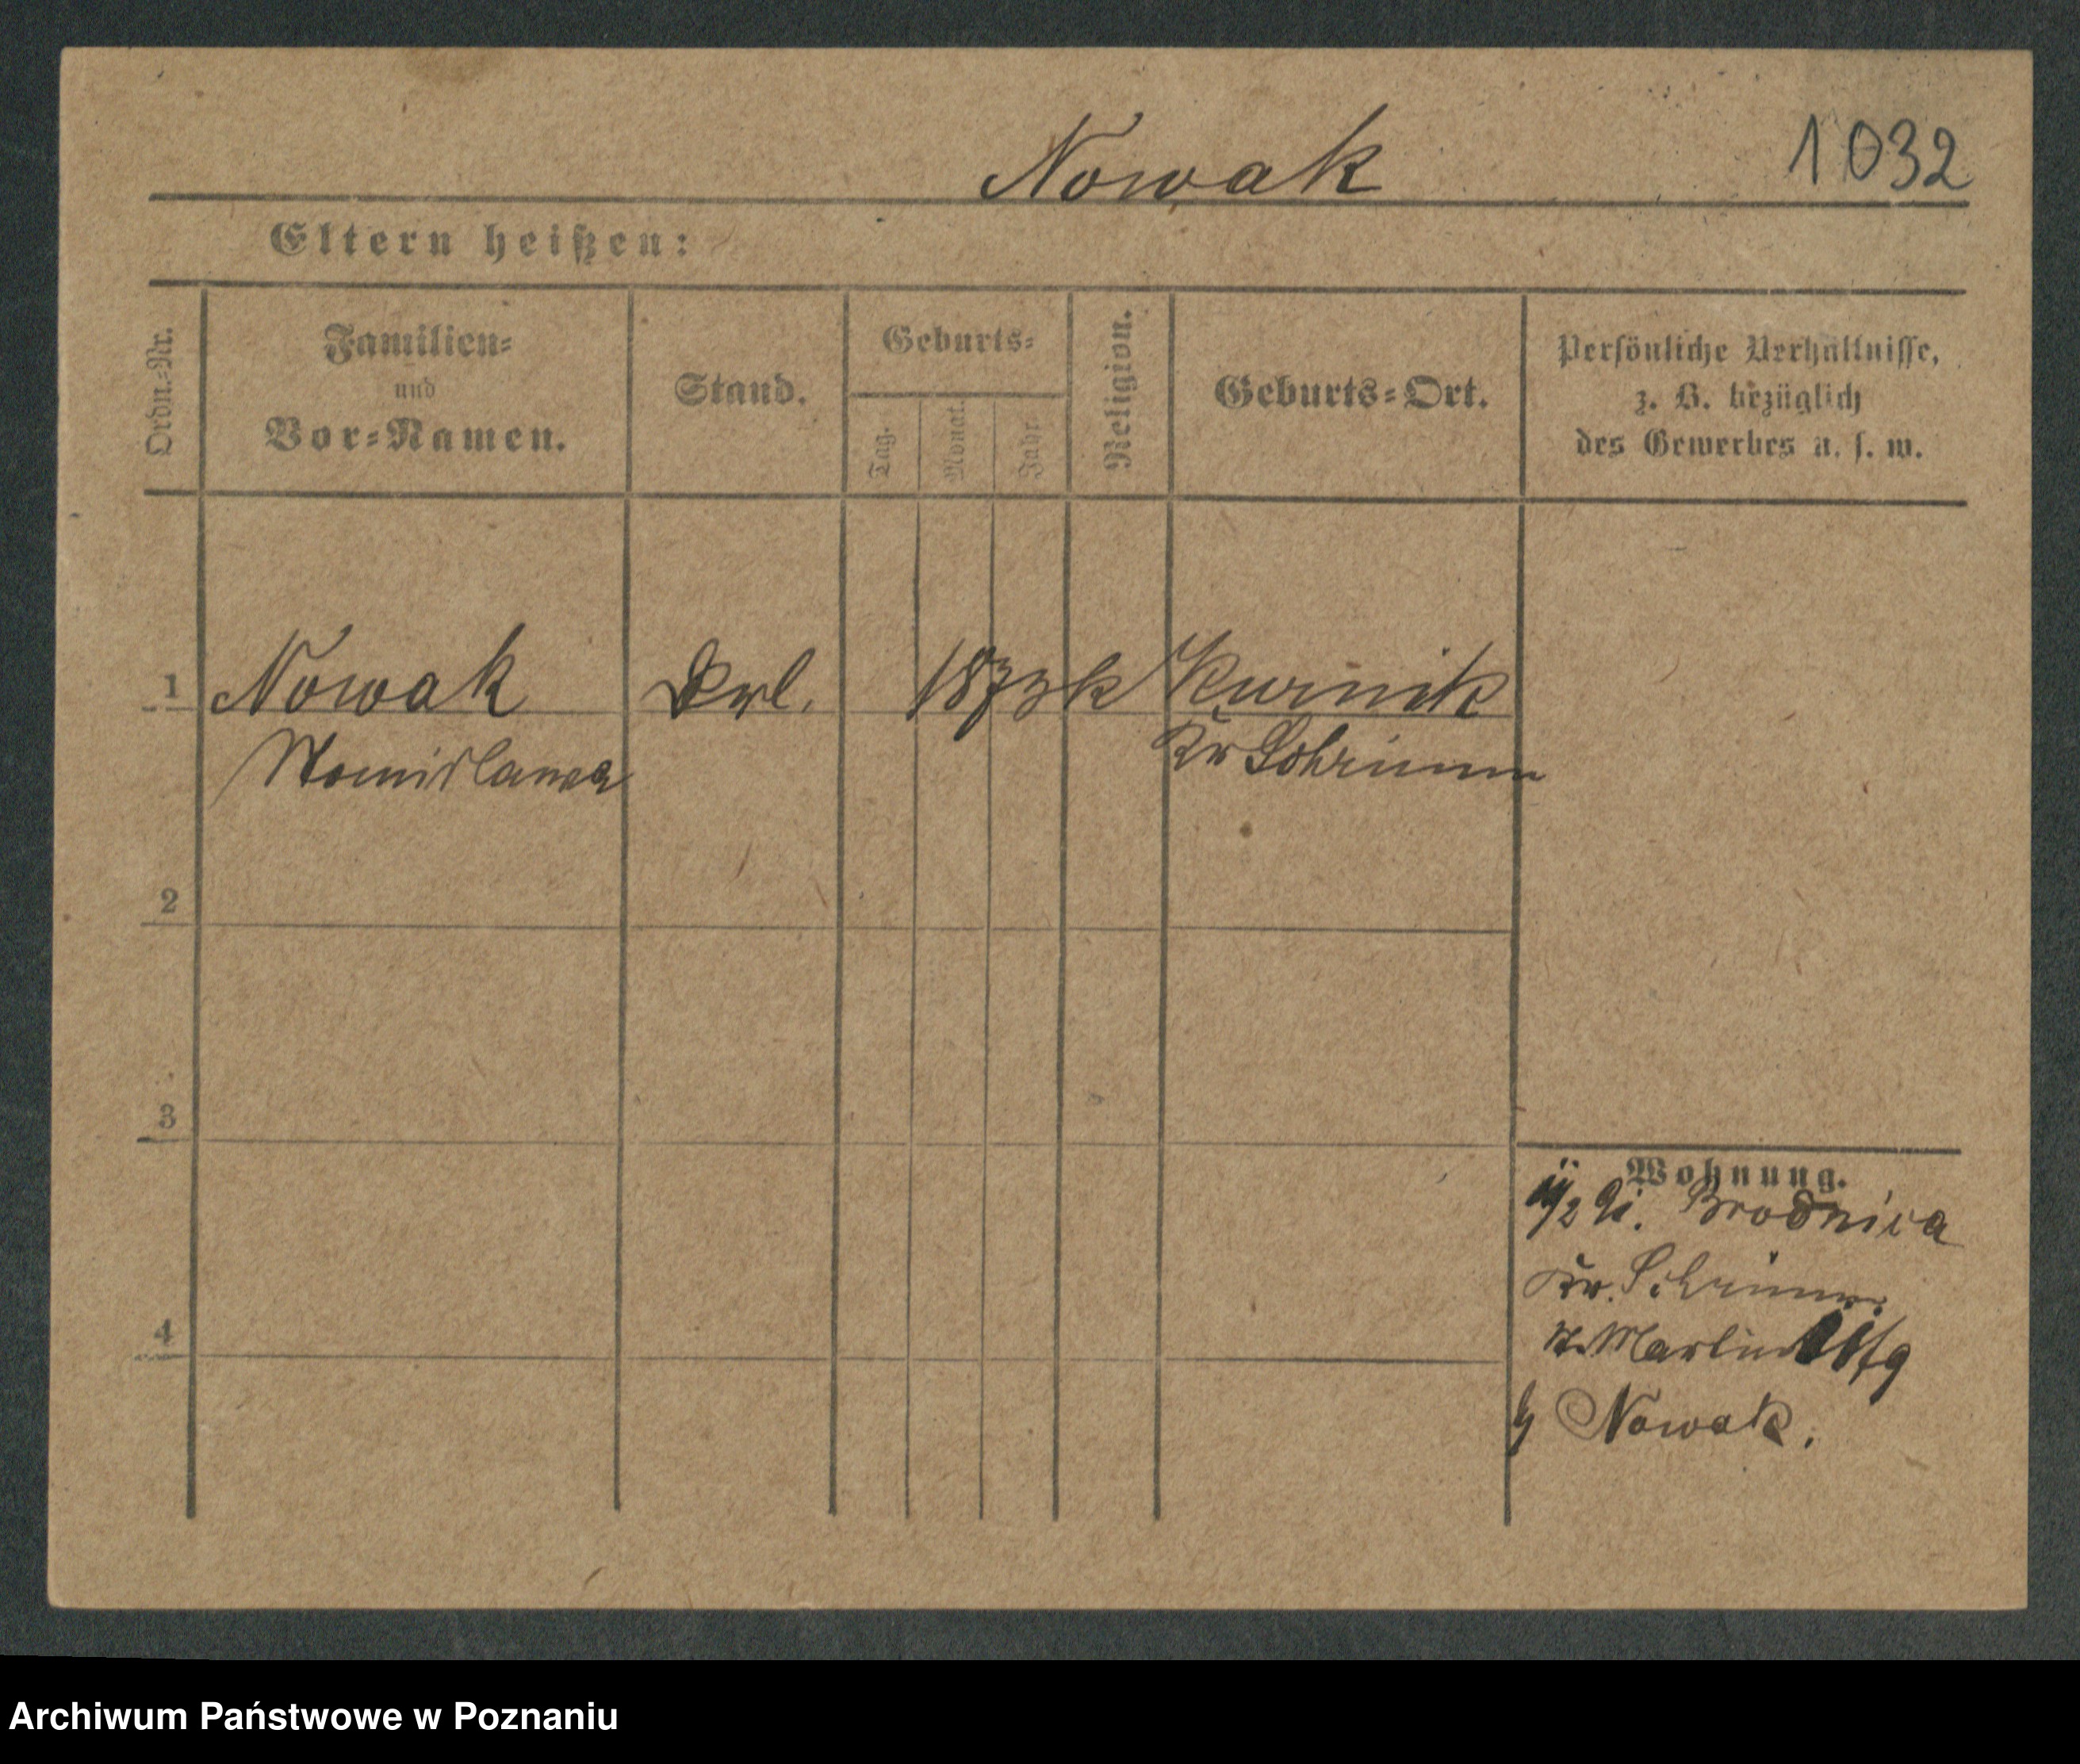 Nowak
1032
Eltern heißen:
Ordn.-Nr.
Familien-
und
Vor-Namen.
Stand.
Geburts-
Tag.
Monat.
Jahr.
Religion.
Geburts-Ort.
Persönliche Verhältnisse,
z. B. bezüglich
des Gewerbes u. s. w.
1 Nowak 1873 k Kurnik
Kr Schrimm
2
3
4
Wohnung.
Brodnica
Kr. Schrimm
St. Martin
Nowak.
Archiwum Państwowe w Poznaniu